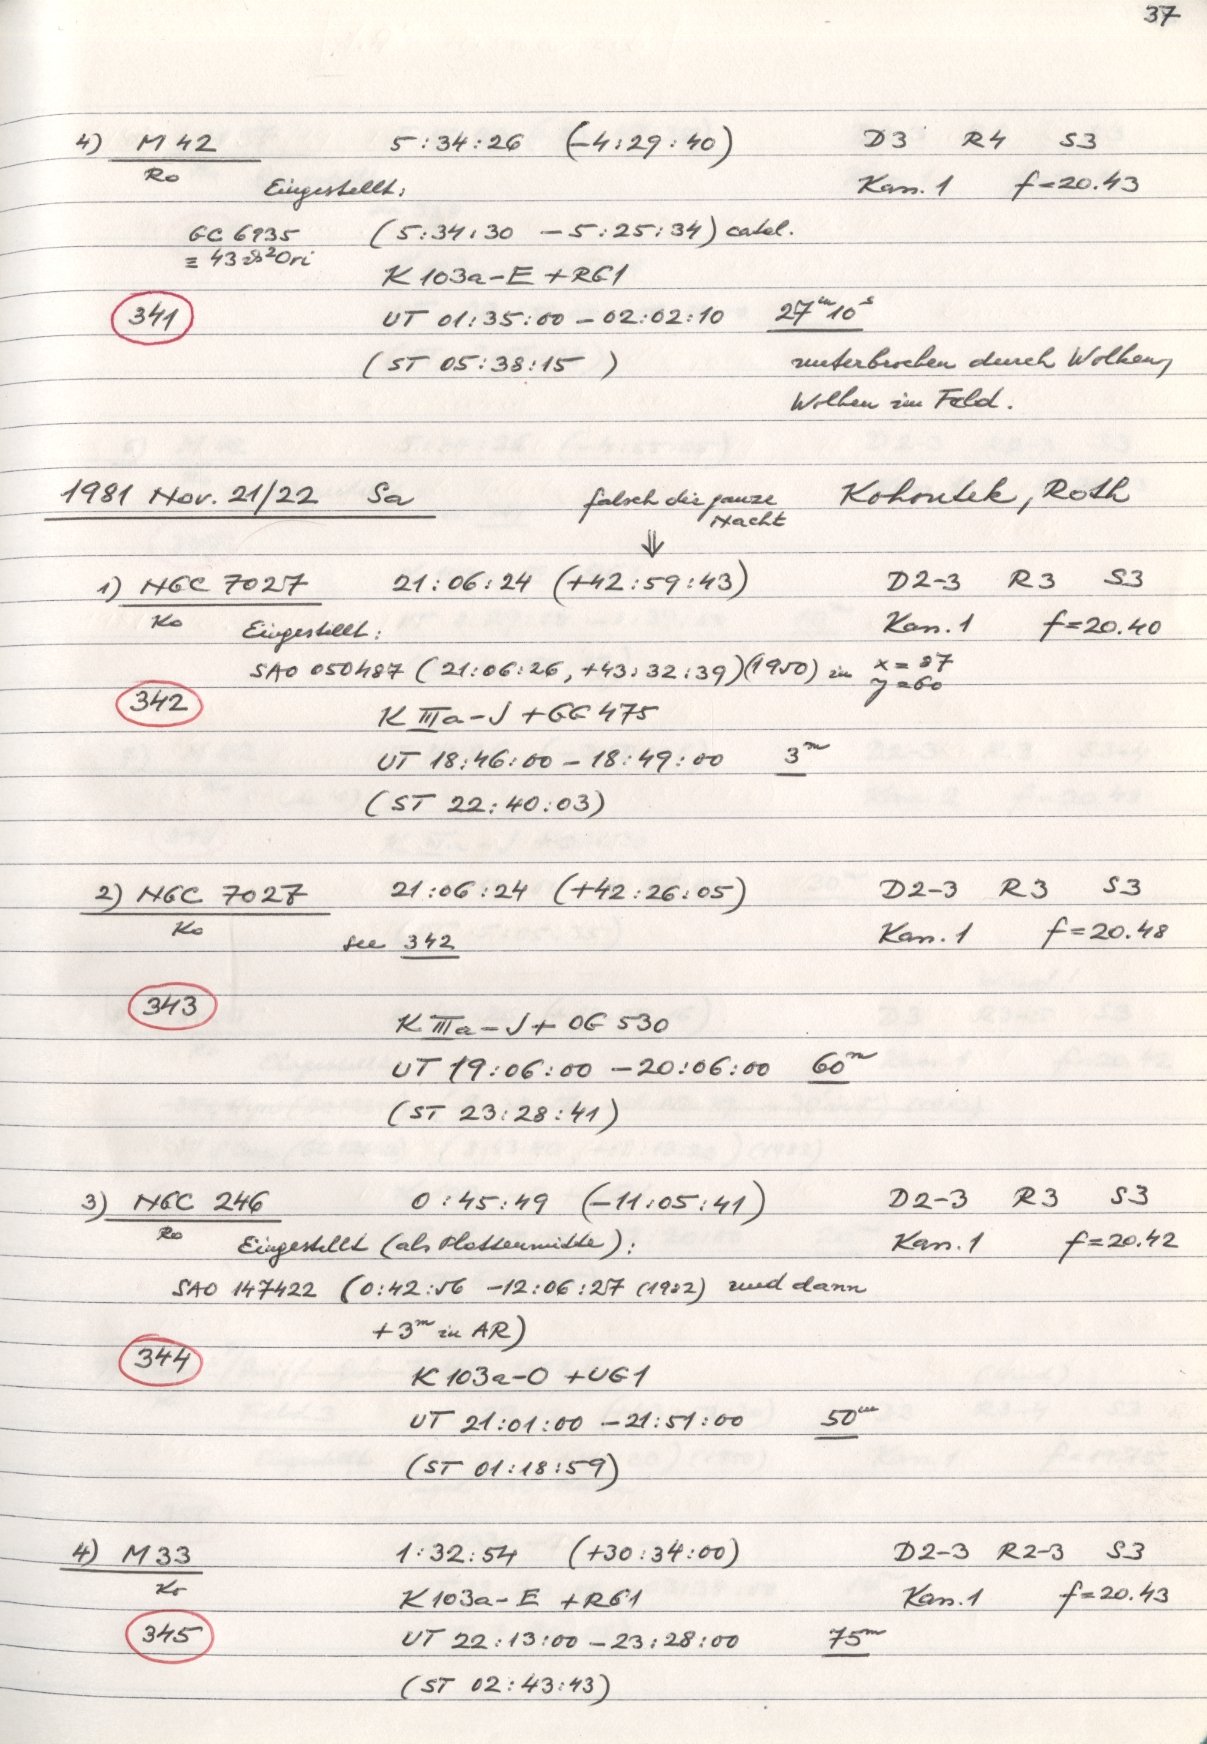 37
4) M 42 5:34:26 (-4:29:40) D3 R4 S3
Ro Eingestellt: Kas. 1 f=20.43
GC 6935 (5:34:30 -5:25:34) catal.
≡ 43 ϑ²Ori
K 103a-E +RG1
341 UT 01:35:00 - 02:02:10 27ᵐ10ˢ
(ST 05:38:15 ) unterbrochen durch Wolken,
Wolken im Feld.
1981 Nov. 21/22 Sa falsch die ganze Nacht Kohoutek, Roth
⇓
1) NGC 7027 21:06:24 (+42:59:43) D2-3 R3 S3
Ko Eingestellt: Kas. 1 f=20.40
SAO 050487 (21:06:26, +43:32:39)(1950) in x=37
y=60
342 K IIIa-J +GG 475
UT 18:46:00 - 18:49:00 3ᵐ
(ST 22:40:03)
2) NGC 7027 21:06:24 (+42:26:05) D2-3 R3 S3
Ko see 342 Kas. 1 f=20.48
343 K IIIa-J + OG 530
UT 19:06:00 -20:06:00 60ᵐ
(ST 23:28:41)
3) NGC 246 0:45:49 (-11:05:41) D2-3 R3 S3
Ro Eingestellt (als Plattenmitte): Kas. 1 f=20.42
SAO 147422 (0:42:56 -12:06:27 (1982) und dann
+3ᵐ in AR)
344 K 103a-O +UG1
UT 21:01:00 -21:51:00 50ᵐ
(ST 01:18:59)
4) M 33 1:32:54 (+30:34:00) D2-3 R2-3 S3
Ko K 103a-E +RG1 Kas. 1 f=20.43
345 UT 22:13:00 -23:28:00 75ᵐ
(ST 02:43:43)